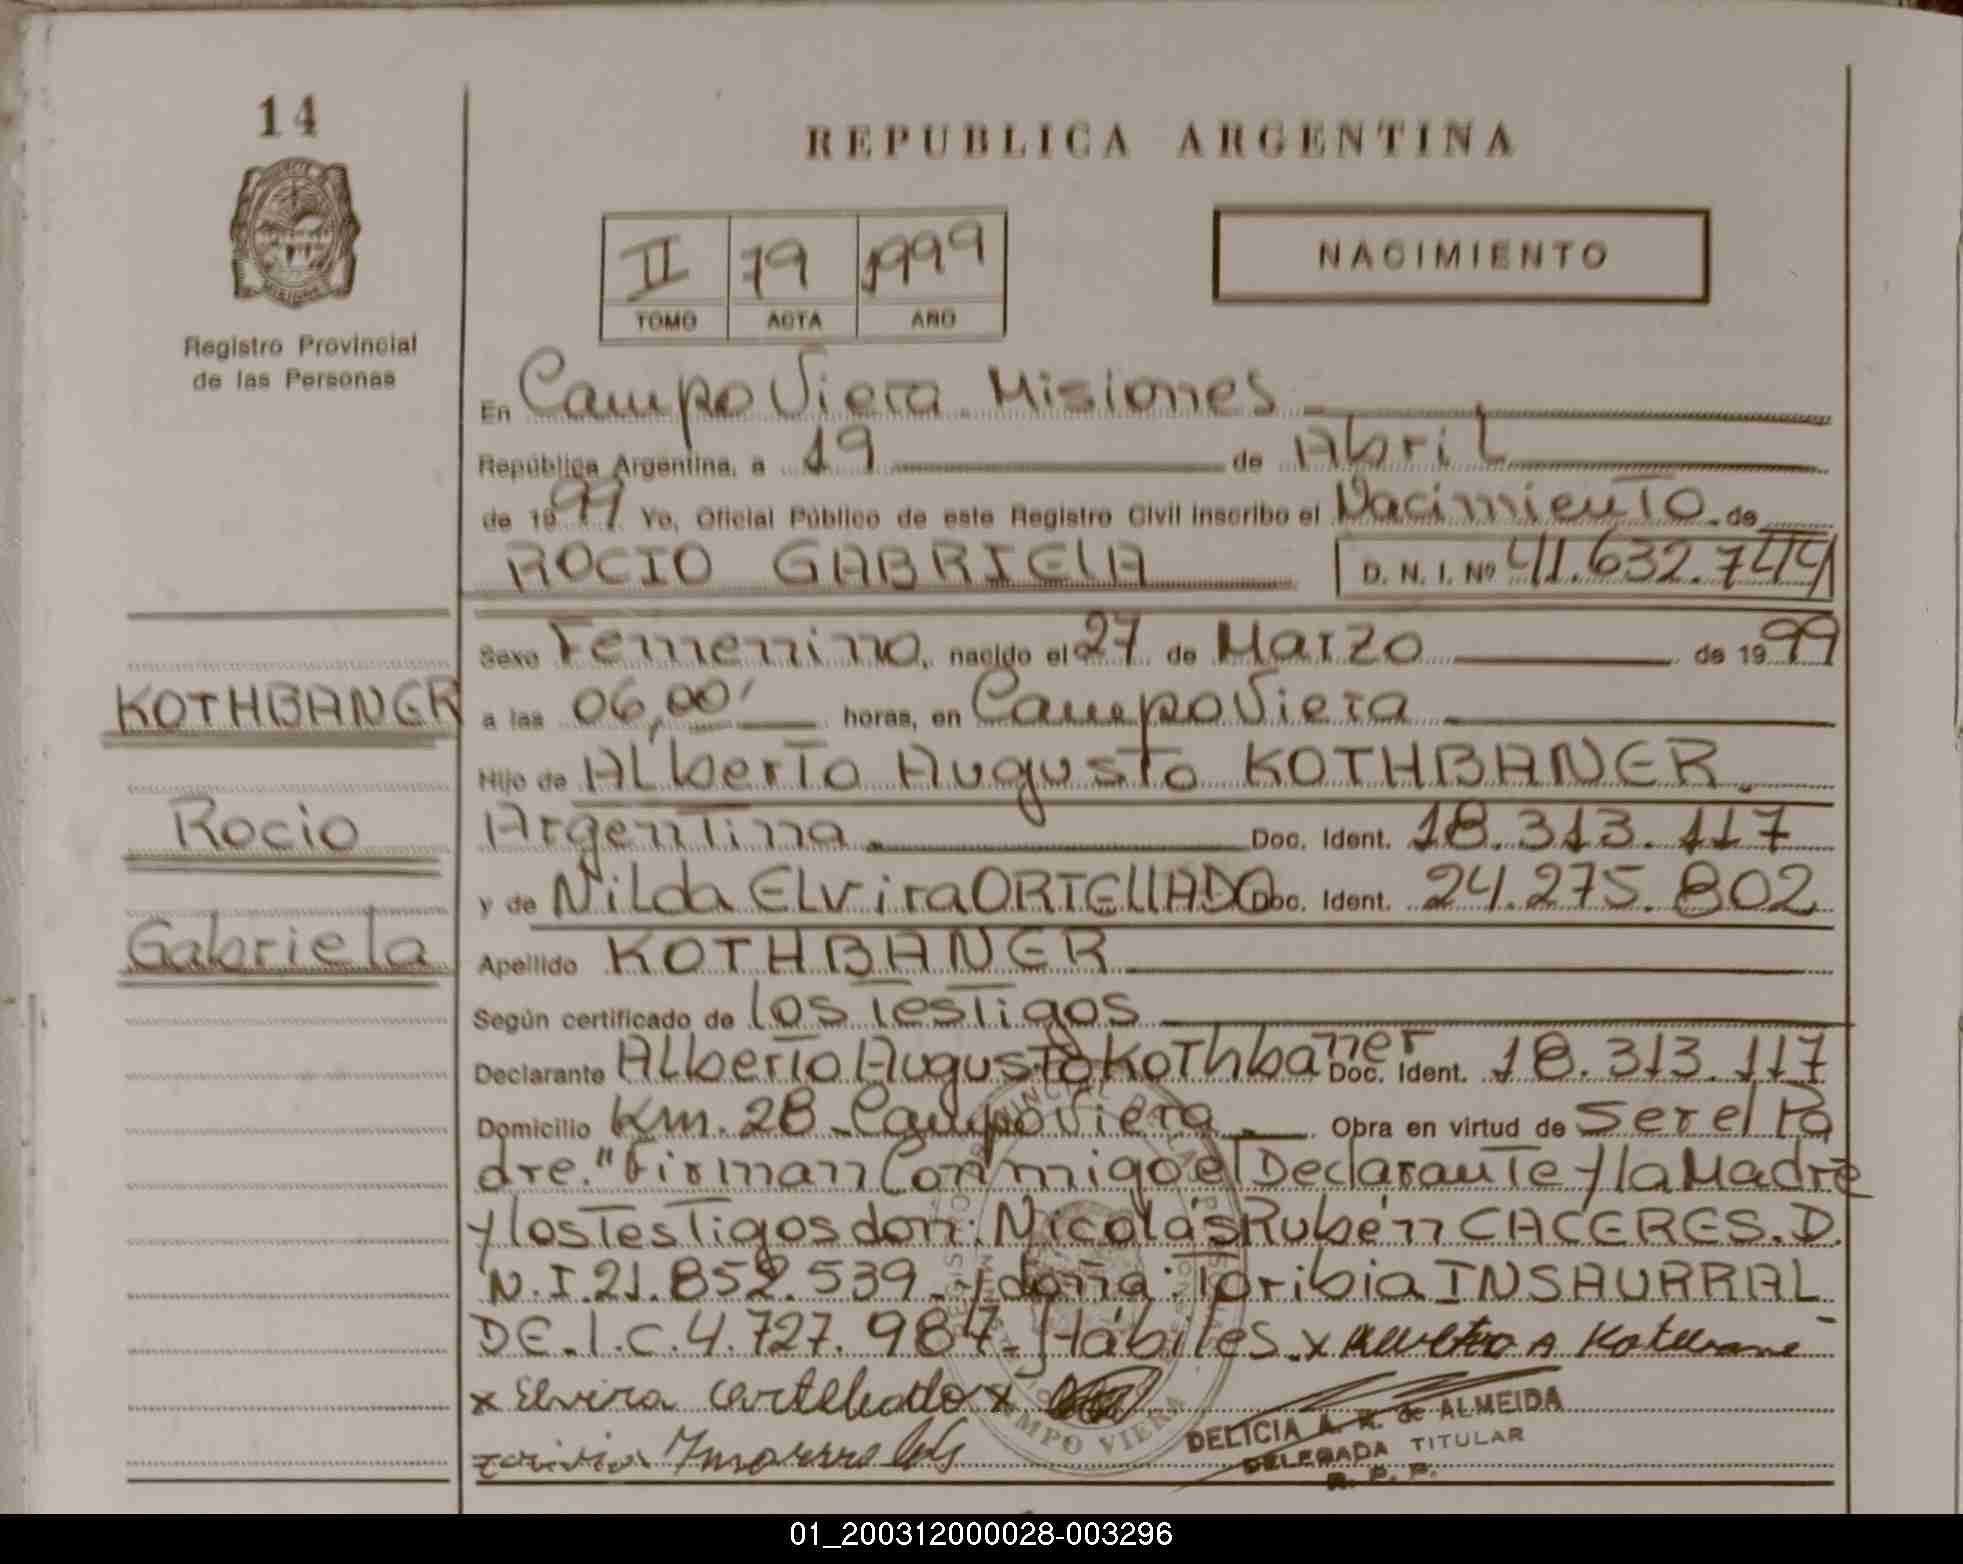 14
REPUBLICA ARGENTINA
II 79 1999
TOMO ACTA AÑO
NACIMIENTO
Registro Provincial
de las Personas
En Campo Viera Misiones
República Argentina, a 19 de Abril
de 1999 Yo, Oficial Público de este Registro Civil inscribo el Nacimiento de
ROCIO GABRIELA D. N. I. Nº 41.632.744
Sexo Femenino, nacido el 27 de Marzo de 1999
KOTHBANER
a las 06,00' horas, en Campo Viera
Hijo de Alberto Augusto KOTHBANER.
Rocio
Argentina. Doc. Ident. 18.313.117
y de Nilda Elvira ORTELLADO Doc. Ident. 24.275.802
Gabriela
Apellido KOTHBANER
Según certificado de los Testigos
Declarante Alberto Augusto Kothbaner Doc. Ident. 18.313.117
Domicilio Km. 28 - Campo Viera Obra en virtud de Ser el Pa
dre." Firman Conmigo el Declarante y la Madre
y los Testigos don: Nicolás Rubén CACERES. D.
N.I. 21.852.539 - y doña: Toribia INSAURRAL
DE. L.C. 4.727.987 - Hábiles. x
x Elvira ortellado x
DELICIA A. R. de ALMEIDA
DELEGADA TITULAR
R. P. P.
CAMPO VIERA
01_200312000028-003296